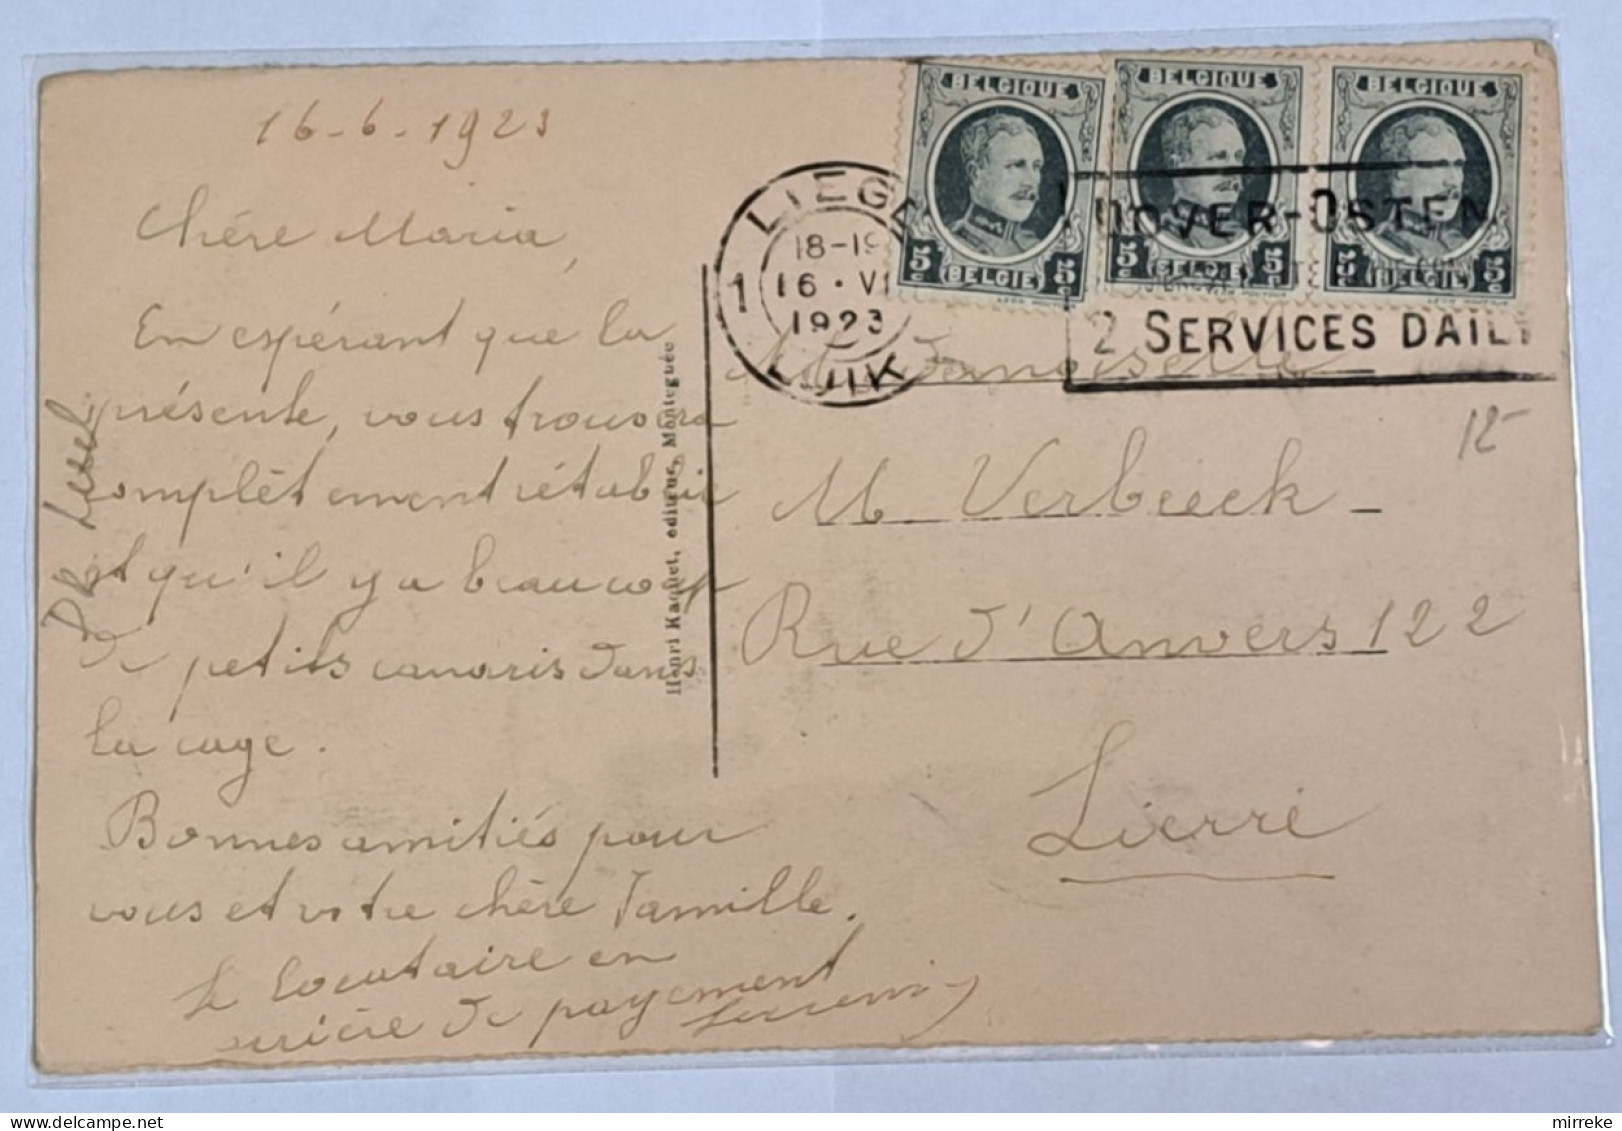 16-6-1923
Chère Maria,
En espérant que la
présente, vous trouvera
complètement rétablie
et qu'il y a beaucoup
de petits canaris dans
la cage.
Bonnes amitiés pour
vous et votre chère famille.
Le locataire en
arrière de payement
Henri Kaquet, editeur, Montegnée
LIEGE
1
18-19
16·VI
1923
LUIK
BELGIQUE
5c BELGIE 5c
BELGIQUE
5c BELGIE 5c
BELGIQUE
5c BELGIE 5c
DOVER-OSTEN
2 SERVICES DAILY
Mademoiselle
12-
M. Verbeeck
Rue d'Anvers 122
Lierre
mirreke